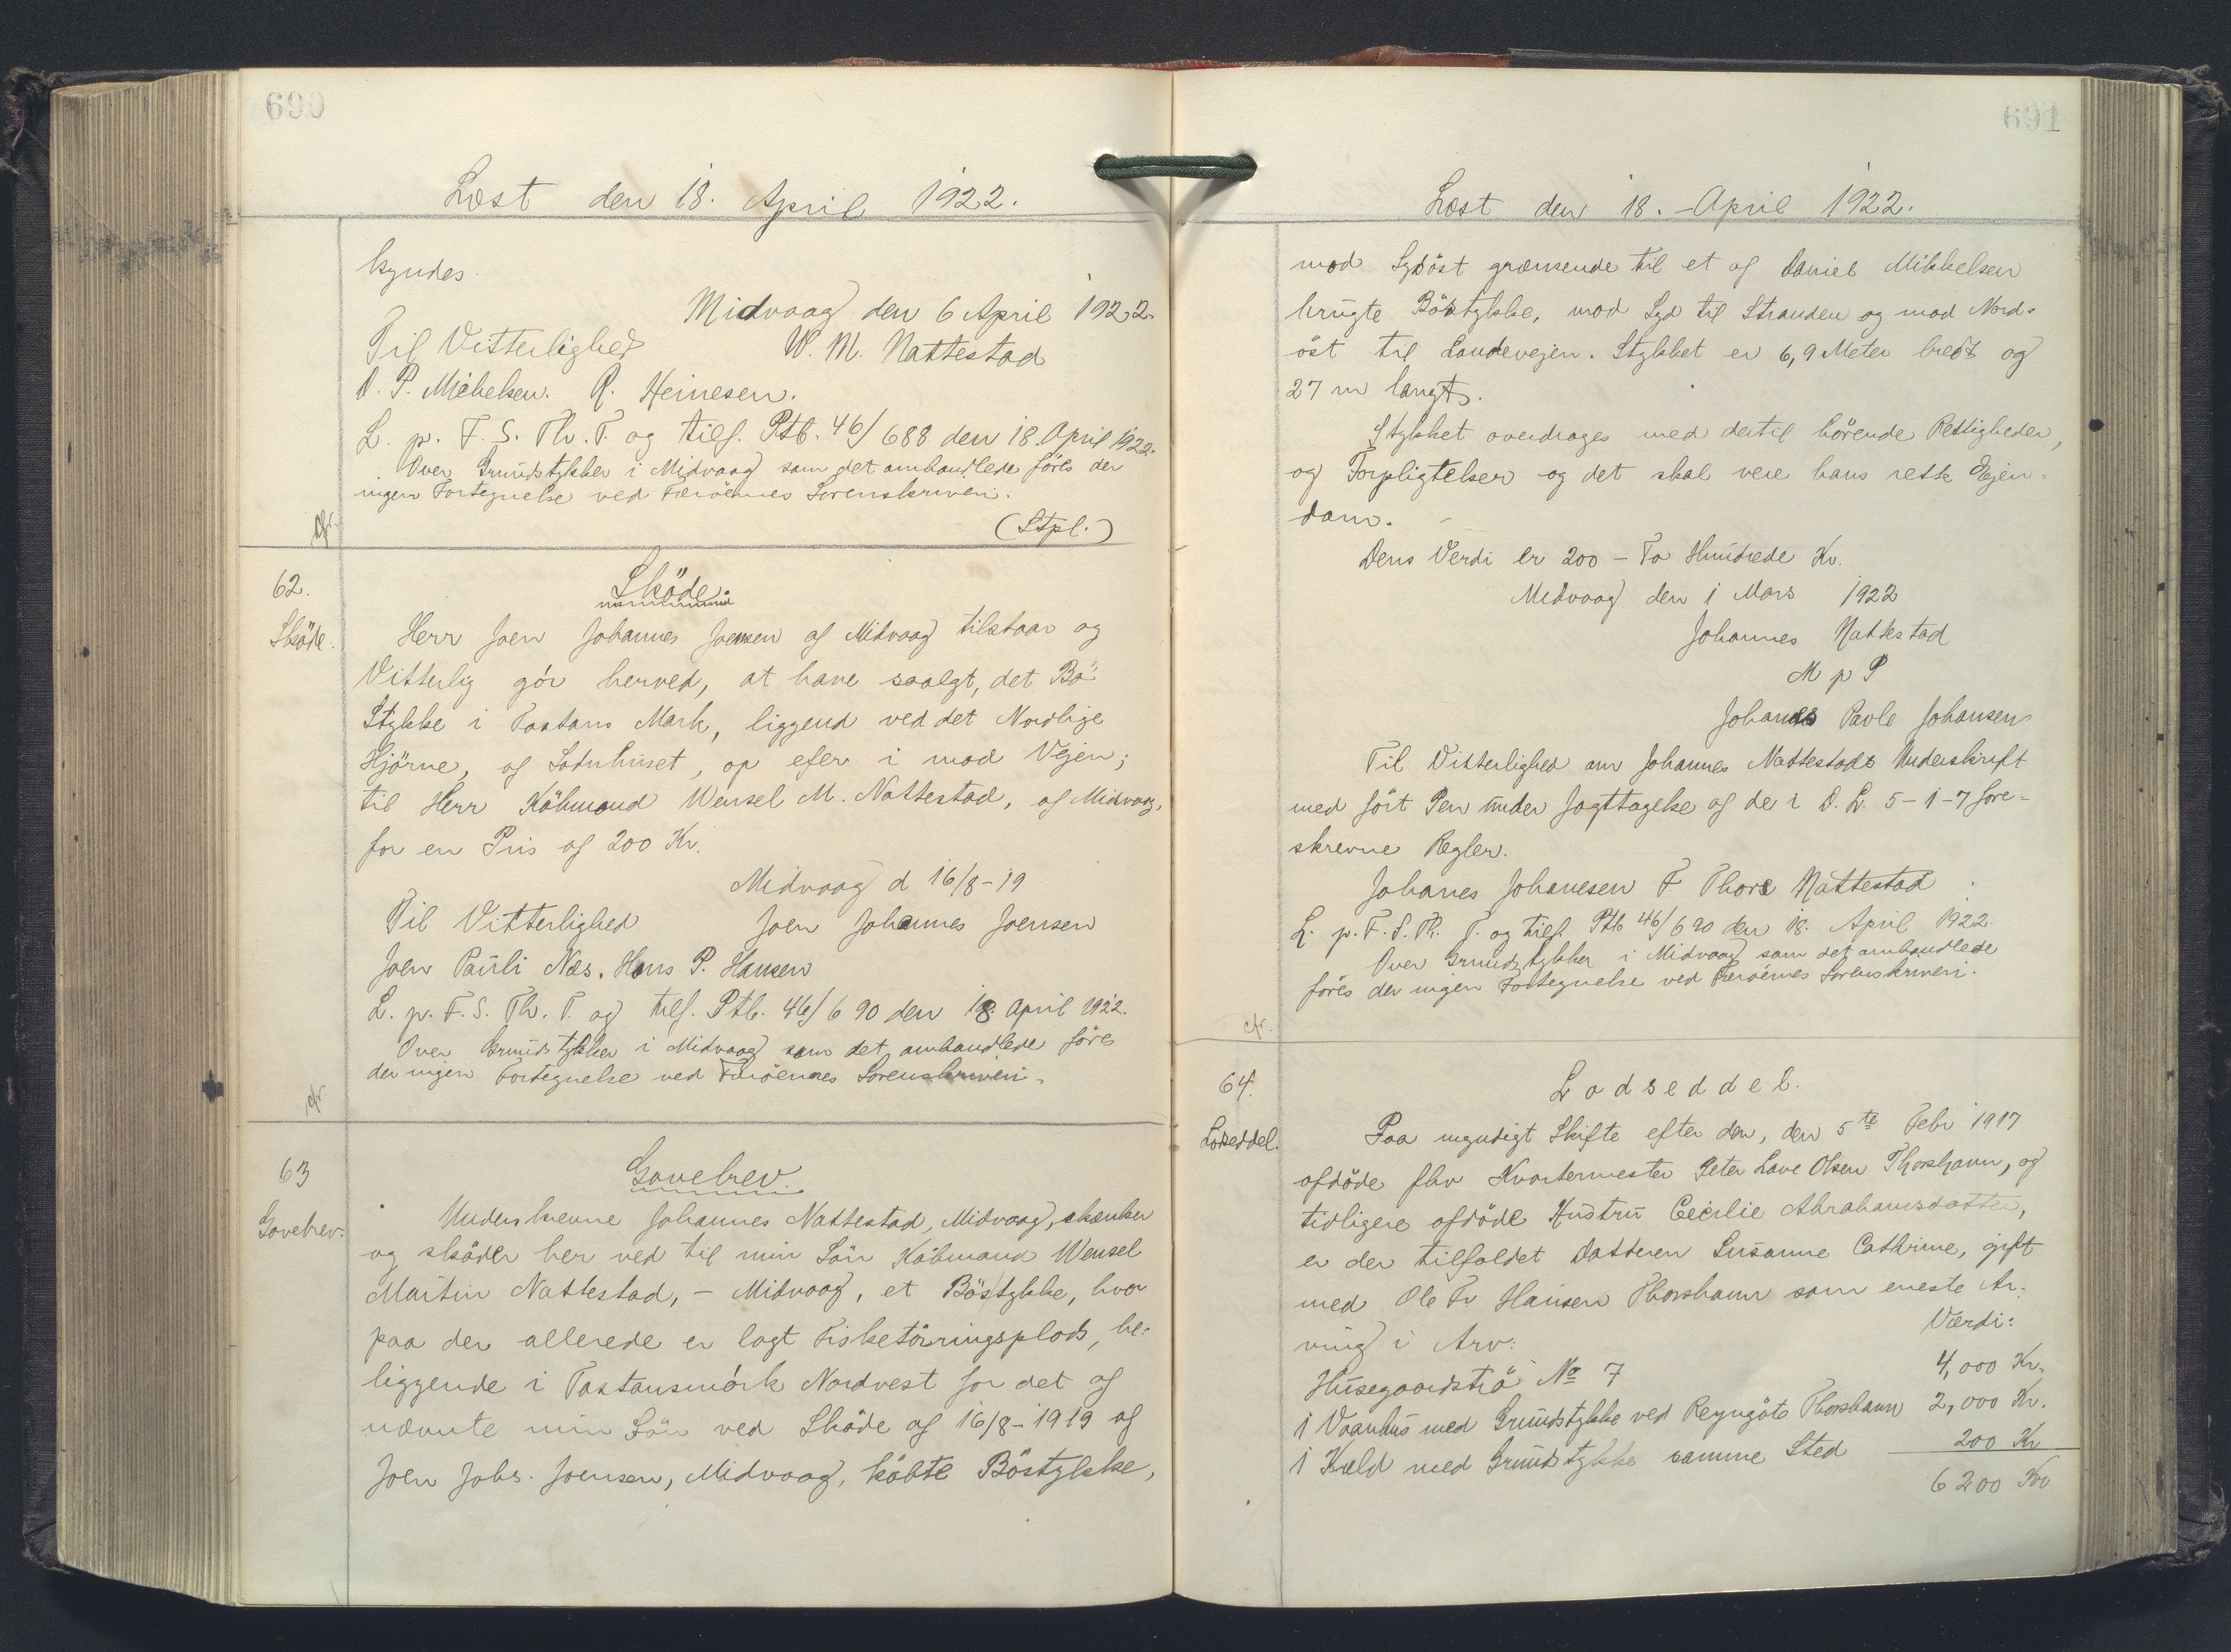 690
Læst den 18. April 1922.
kyndes.
Midvaag den 6 April 1922.
Til Vitterlighed W. M. Nattestad
D. P. Michelsen. R. Heinesen.
L. p. F. S. Th. T. og tilf. Ptb. 46/688 den 18. April 1922.
Over Grundstykker i Midvaag som det omhandlede föres der
ingen Fortegnelse ved Færöernes Sorenskriveri.
cfr. (Stpl.)
62. Sköde.
Sköde. Herr Joen Johannes Joensen af Midvaag tilstaar og
Vitterlig gör herved, at have soolgt, det Bö-
Stykke i Tastans Mark, liggend ved det Nordlige
Hjörne, af Sotnhuset, op efer i mod Vejen;
til Herr Köbmand Wensel M. Nattestad, af Midvaag,
for en Pris af 200 Kr.
Midvaag d 16/8-19
Til Vitterlighed Joen Johannes Joensen
Joen Pauli Næs. Hans P. Hansen
L. p. F. S. Th. T. og tilf. Ptb. 46/690 den 18. April 1922.
Over Grundstykker i Midvaag som det omhandlede föres
der ingen Fortegnelse ved Færöernes Sorenskriveri.
cfr.
63 Gavebrev.
Gavebrev. Underskrevne Johannes Nattestad, Midvaag, skænker
og sköder her ved til min Sön Köbmand Wensel
Martin Nattestad, - Midvaag, et Böstykke, hvor
paa der allerede er lagt Fisketörringsplads, be-
liggende i Tastansmörk Nordvest for det af
nævnte min Sön ved Sköde af 16/8-1919 af
Joen Johs. Joensen, Midvaag, köbte Böstykke,
691
Læst den 18. April 1922.
mod Sydöst grænsende til et af Daniel Mikkelsen
brugte Böstykke, mod Syd til Stranden og mod Nord-
öst til Landevejen. Stykket er 6,9 Meter bredt og
27 m langt.
Stykket overdrages med dertil hörende Rettigheder,
og Forpligtelser og det skal vere hans rette Ejen-
dom.
Dens Verdi er 200 - To Hundrede Kr.
Midvaag den 1 Mars 1922
Johannes Nattestad
M p P
Johanes Paole Johansen
Til Vitterlighed om Johannes Nattestads Underskrift
med fört Pen under Jagttagelse af de i D. L. 5-1-7 fore-
skrevne Regler.
Johanes Johanesen F Thore Nattestad
L. p. F. S. Th. T. og tilf. Ptb 46/690 den 18. April 1922.
Over Grundstykker i Midvaag som det omhandlede
föres der ingen Fortegnelse ved Færöernes Sorenskriveri.
cfr.
64. Lodseddel.
Lodseddel. Paa myndigt Skifte efter den, den 5te Febr 1917
afdöde fhv Kvartermester Peter Lave Olsen Thorshavn, og
tidligere afdöde Hustru Cecilie Abrahamsdatter,
er der tilfaldet Datteren Susanne Cathrine, gift
med Ole Fr Hansen Thorshavn som eneste Ar-
ving i Arv: Værdi:
Husegaardströ No 7 4,000 Kr.
1 Vaanhus med Grundstykke ved Reyngöto Thorshavn 2,000 Kr.
1 Kæld med Grundstykke samme Sted 200 Kr
6200 Kr